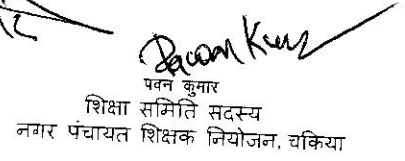 Pawan Kumar
पवन कुमार
शिक्षा समिति सदस्य
नगर पंचायत शिक्षक नियोजन, चकिया